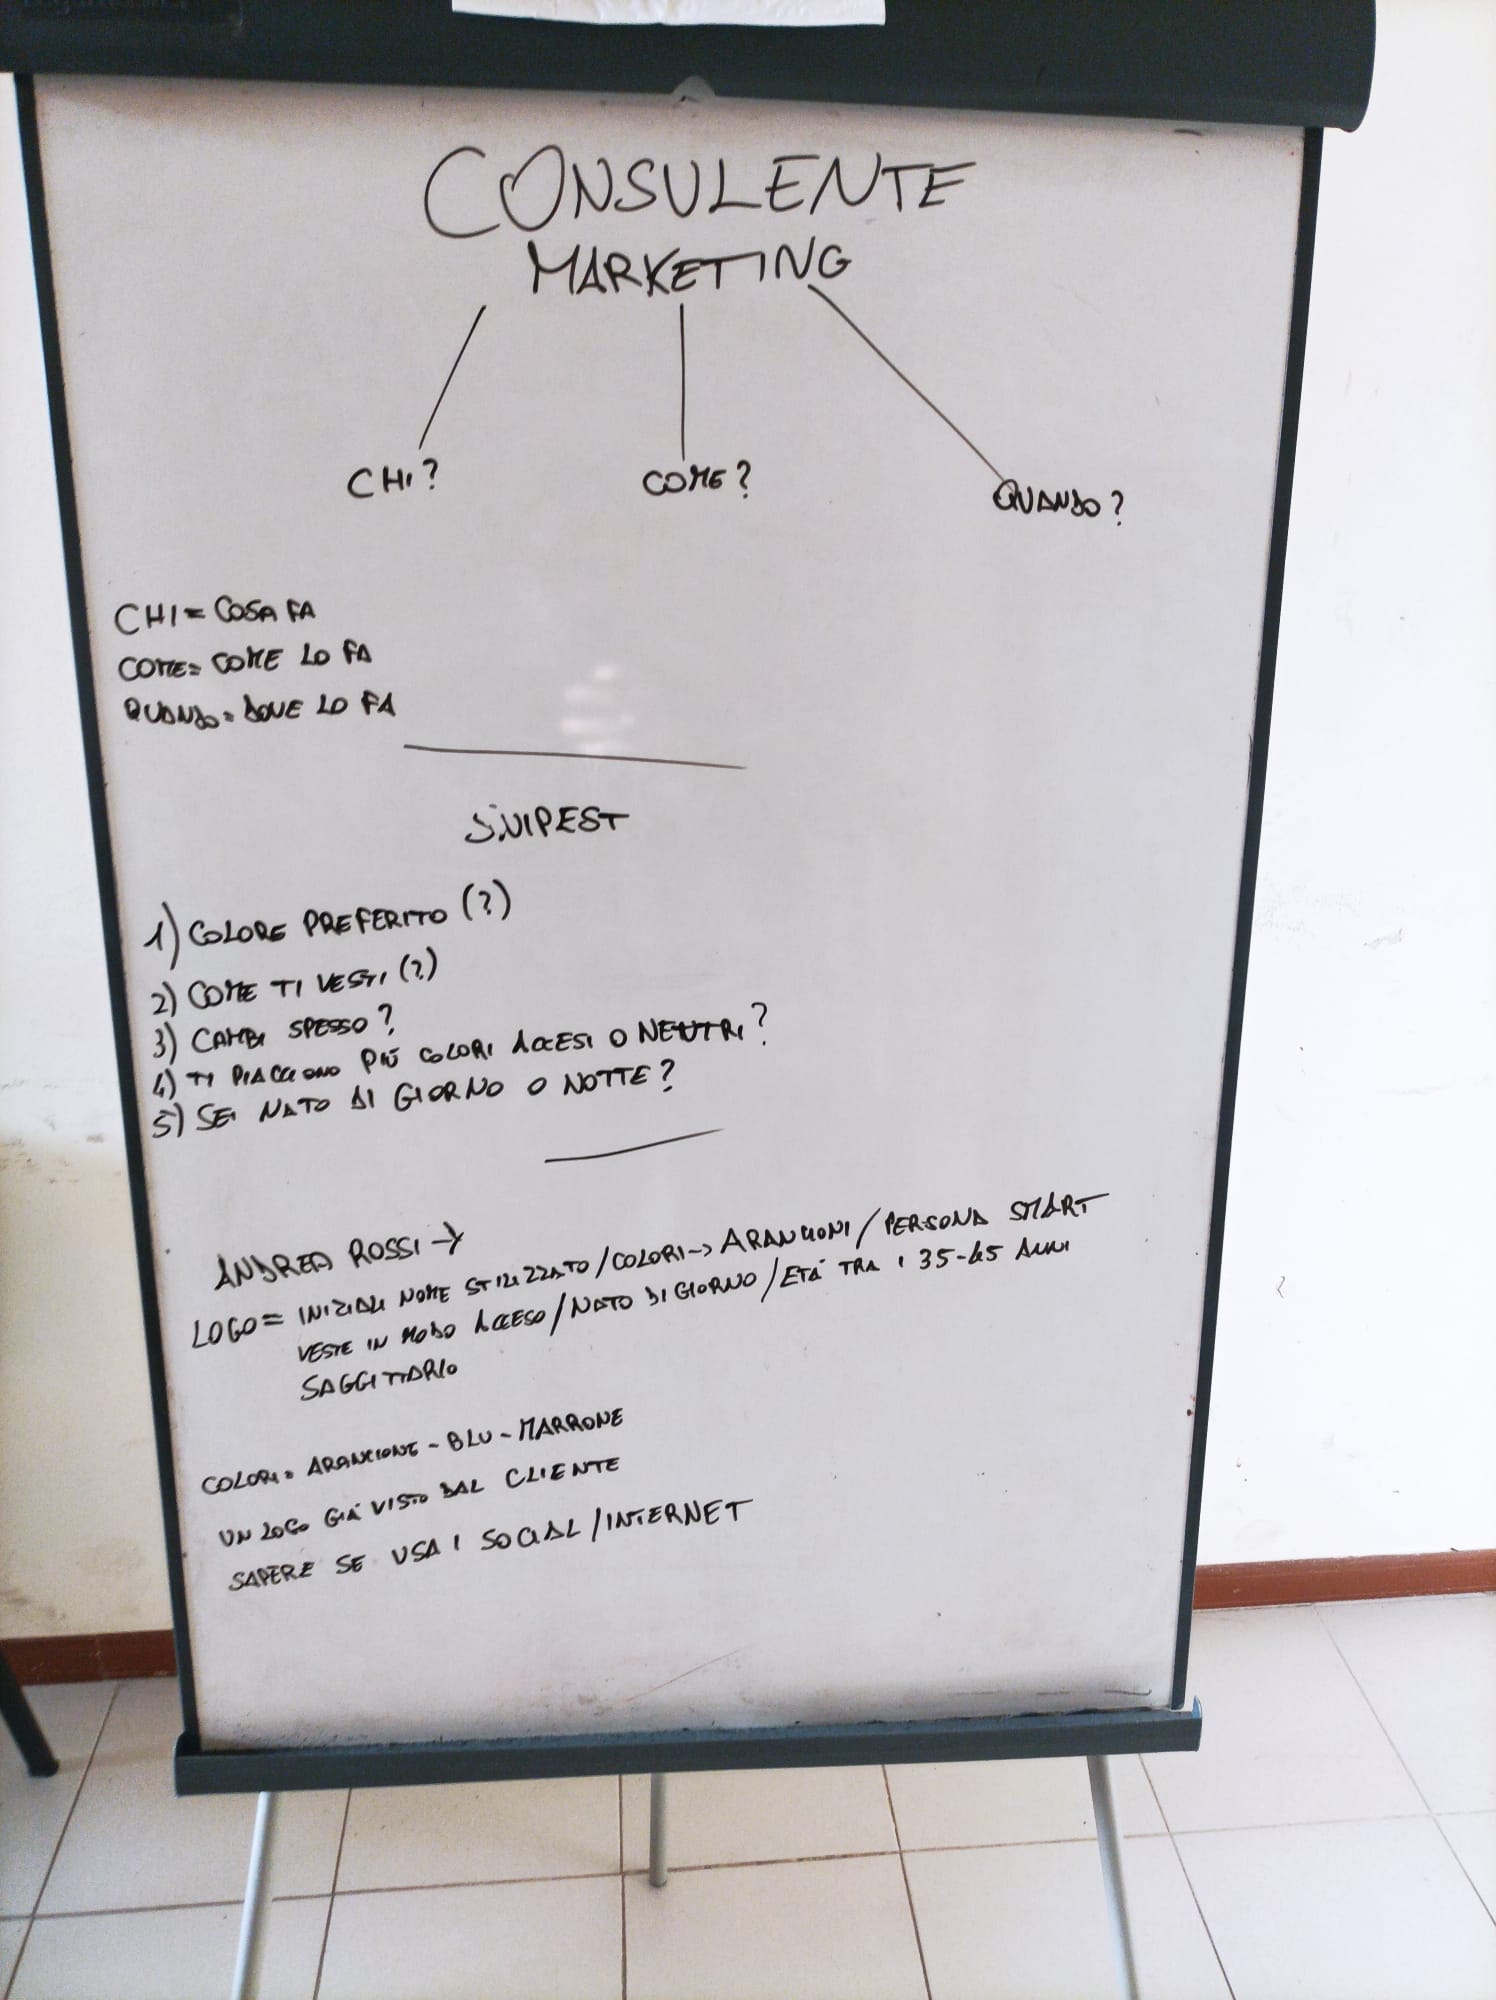 CONSULENTE
MARKETING
CHI? COME? QUANDO?
CHI= COSA FA
COME= COME LO FA
QUANDO= DOVE LO FA
SNIPEST
1) COLORE PREFERITO (?)
2) COME TI VESTI (?)
3) CAMBI SPESSO?
4) TI PIACCIONO PIÙ COLORI ACCESI O NEUTRI?
5) SEI NATO DI GIORNO O NOTTE?
ANDREA ROSSI →
LOGO= INIZIALI NOME STILIZZATO/COLORI→ ARANCIONI/PERSONA SMART
VESTE IN MODO ACCESO/NATO DI GIORNO/ETÀ TRA I 35-45 ANNI
SAGGITTARIO
COLORI= ARANCIONE-BLU-MARRONE
UN LOGO GIÀ VISTO DAL CLIENTE
SAPERE SE USA I SOCIAL/INTERNET